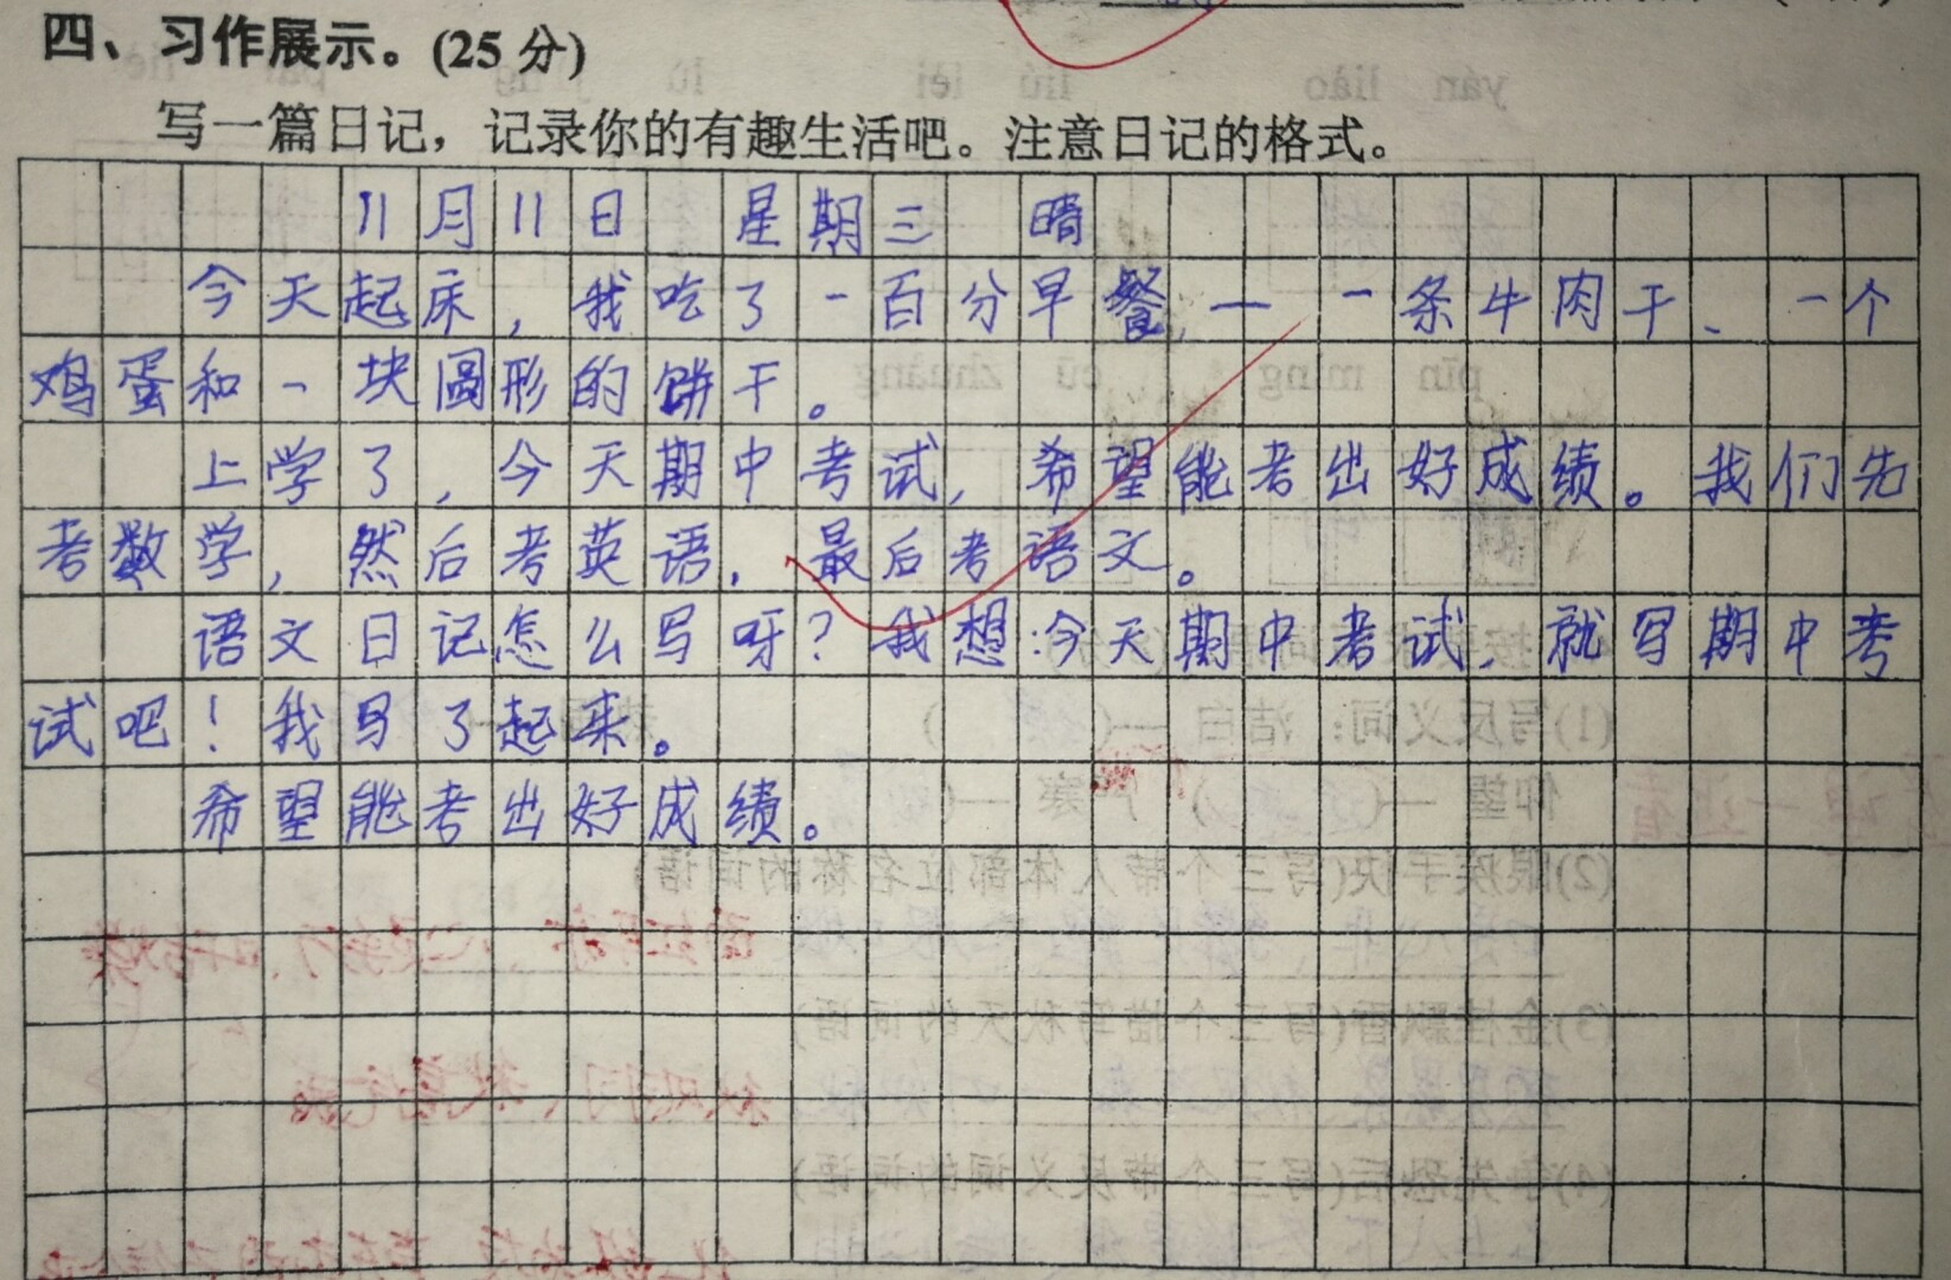 四、习作展示。(25分)
写一篇日记，记录你的有趣生活吧。注意日记的格式。
11月11日 星期三 晴
今天起床，我吃了一百分早餐，一一条牛肉干、一个
鸡蛋和一块圆形的饼干。
上学了，今天期中考试，希望能考出好成绩。我们先
考数学，然后考英语，最后考语文。
语文日记怎么写呀？我想：今天期中考试，就写期中考
试吧！我写了起来。
希望能考出好成绩。